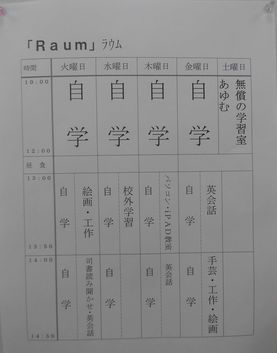 「Raum」ラウム
時間 火曜日 水曜日 木曜日 金曜日 土曜日
10:00 自学 自学 自学 自学 無償の学習室 あゆむ
12:00
昼食
13:00 自学 絵画・工作 自学 校外学習 自学 パソコン・IPAD動画 自学 英会話
13:50
14:00 自学 司書読み聞かせ・英会話 自学 自学 英会話 自学 手芸・工作・絵画
14:50